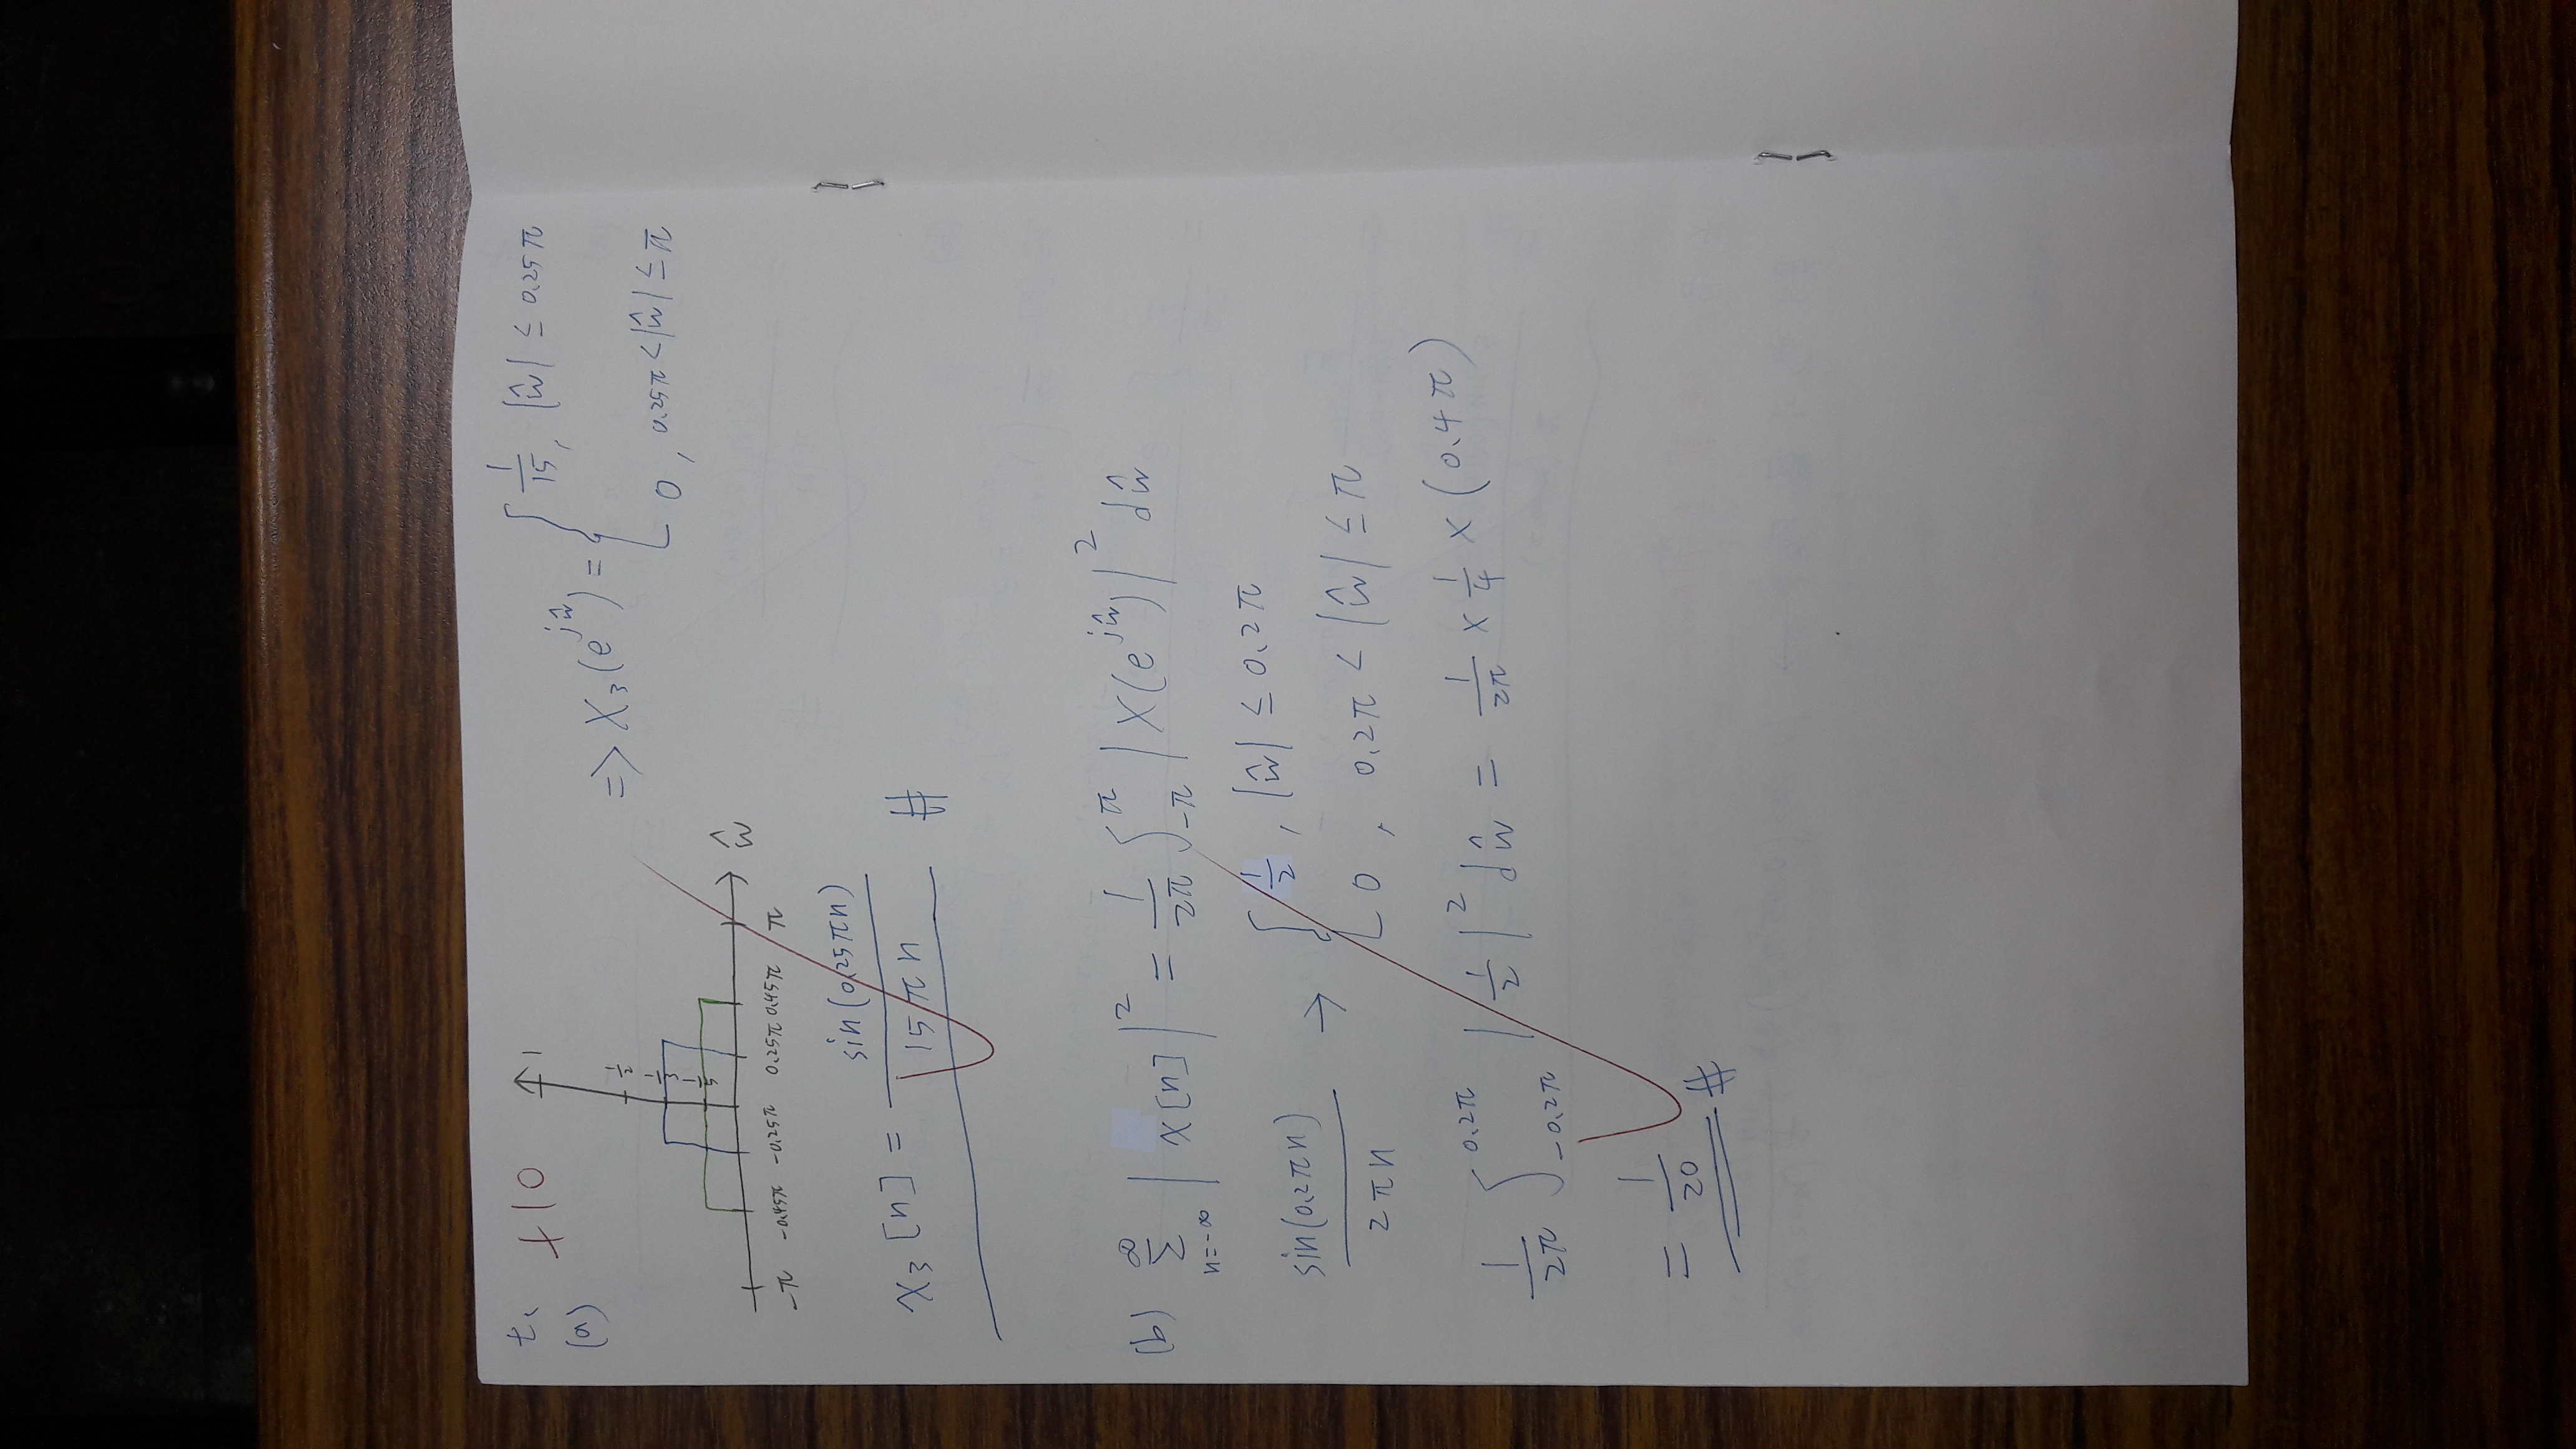 t. +10
(a)
1
1/2
1/3
1/5
ŵ
-π -0.45π -0.25π 0.25π 0.45π π
=> X₃(e^{jŵ}) = { 1/15, |ŵ| ≤ 0.25π
0, 0.25π < |ŵ| ≤ π
x₃[n] = sin(0.25πn) / 15πn #
(b) Σ_{n=-∞}^{∞} |x[n]|² = 1/2π ∫_{-π}^{π} |X(e^{jŵ})|² dŵ
sin(0.2πn) / 2πn → { 1/2, |ŵ| ≤ 0.2π
0, 0.2π < |ŵ| ≤ π
1/2π ∫_{-0.2π}^{0.2π} |1/2|² dŵ = 1/2π × 1/4 × (0.4π)
= 1/20 #